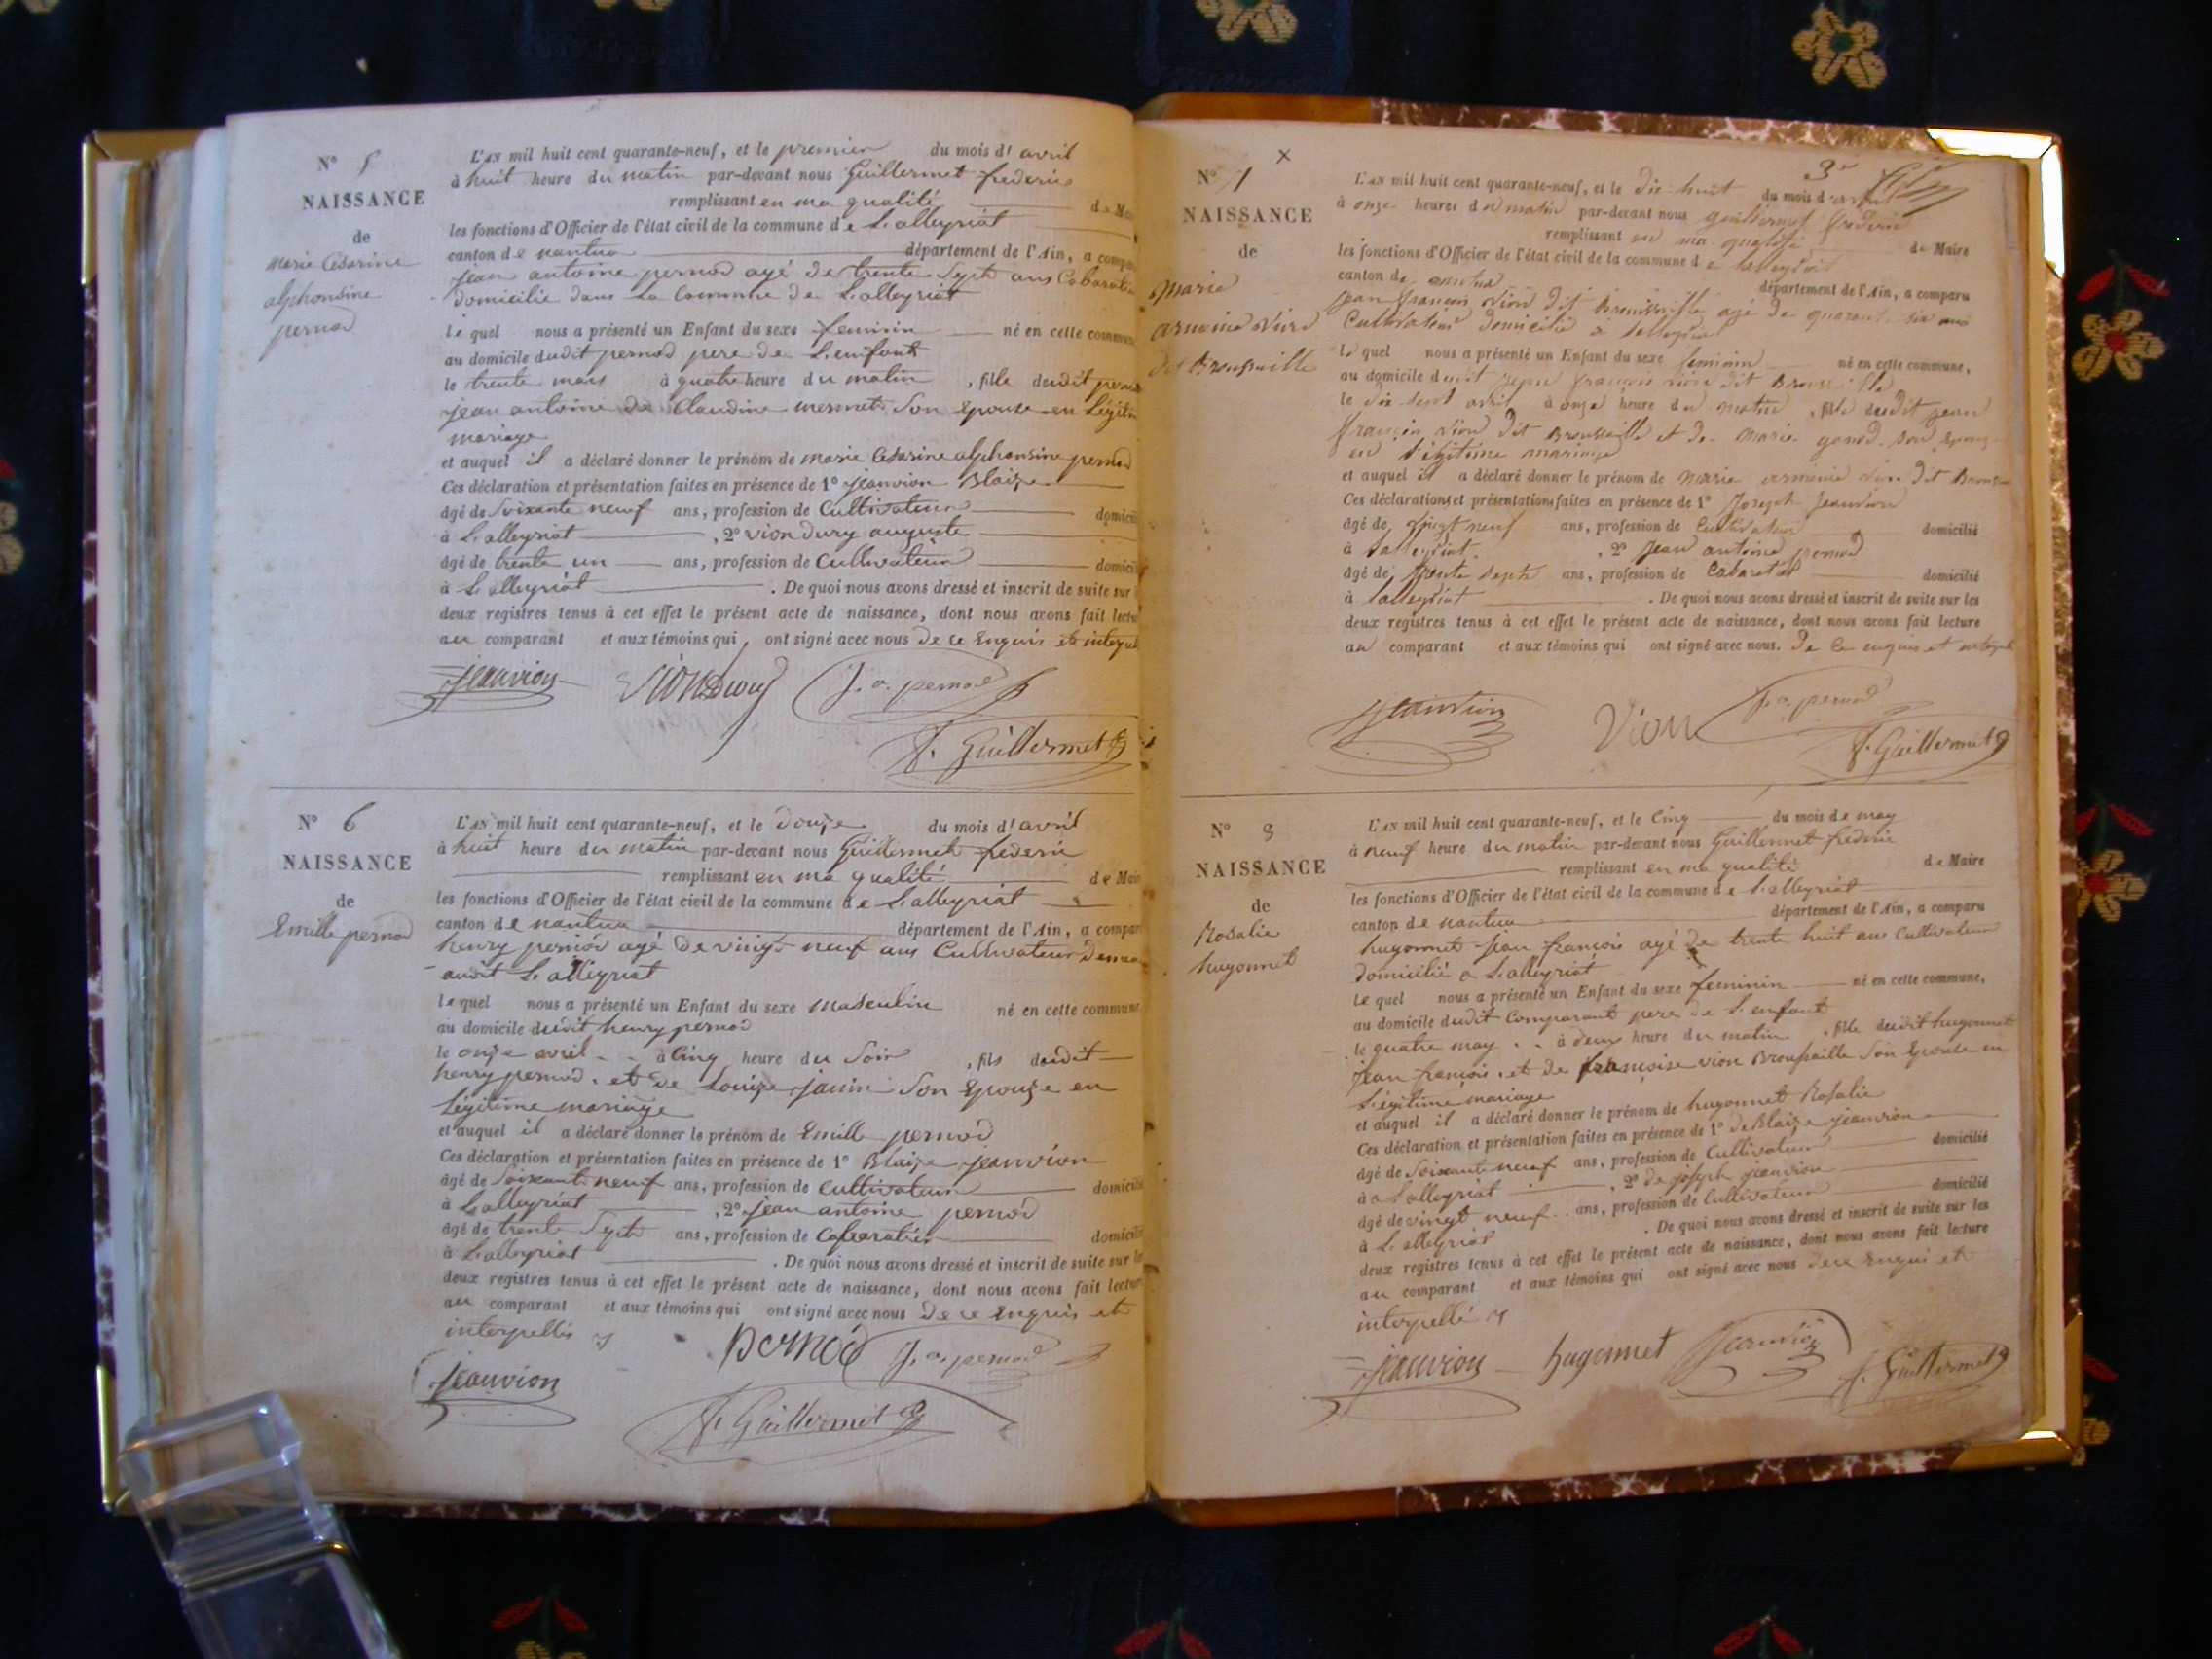 N° 5
NAISSANCE
de
marie Césarine
alphonsine
pernod
L'AN mil huit cent quarante-neuf, et le premier du mois d' avril
à huit heure du matin par-devant nous Guillermet frederic
remplissant en ma qualité de
les fonctions d'Officier de l'état civil de la commune de L'alleyriat
canton de nantua département de l'Ain, a
jean antoine pernod agé de trente Sept ans
domicilié dans La Commune de L'alleyriat
le quel nous a présenté un Enfant du sexe feminin né en cette
au domicile dudit pernod pere de L'enfant
le trente mars à quatre heure du matin , fille dudit
jean antoine de Claudine mermet Son Epouse en
mariage
et auquel il a déclaré donner le prénom de marie Césarine alphonsine pernod
Ces déclaration et présentation faites en présence de 1° jeanvion Blaize
âgé de Soixante neuf ans, profession de Cultivateur
à L'alleyriat , 2° vion dury auguste
âgé de trente un ans, profession de Cultivateur
à L'alleyriat . De quoi nous avons dressé et inscrit de suite sur
deux registres tenus à cet effet le présent acte de naissance, dont nous avons fait
au comparant et aux témoins qui ont signé avec nous de ce Enquis et
jeanvion Viondury J. a. pernod
f. Guillermet
N° 6
NAISSANCE
de
Emille pernod
L'AN mil huit cent quarante-neuf, et le douze du mois d' avril
à huit heure du matin par-devant nous Guillermet federic
remplissant en ma qualité de
les fonctions d'Officier de l'état civil de la commune de L'alleyriat
canton de nantua département de l'Ain, a
henry pernod agé de vingt neuf ans Cultivateur
L'alleyriat
le quel nous a présenté un Enfant du sexe masculin né en cette commune
au domicile dudit henry pernod
le onze avril à Cinq heure du Soir , fils dudit
henry pernod et de Louize janin Son Epouze en
Légitime mariage
et auquel il a déclaré donner le prénom de Emille pernod
Ces déclaration et présentation faites en présence de 1° Blaize jeanvion
âgé de Soixante neuf ans, profession de Cultivateur
à L'alleyriat , 2° jean antoine pernod
âgé de trente Sept ans, profession de
à L'alleyriat . De quoi nous avons dressé et inscrit de suite sur
deux registres tenus à cet effet le présent acte de naissance, dont nous avons fait
au comparant et aux témoins qui ont signé avec nous de ce Enquis et
interpellés
jeanvion pernod J. a. pernod
f. Guillermet
x 3e
N° 7
NAISSANCE
de
Marie
vion
dit Broussaille
L'AN mil huit cent quarante-neuf, et le dix huit du mois d'avril
à onze heures du matin par-devant nous guillermet frederic
remplissant en ma qualité de Maire
les fonctions d'Officier de l'état civil de la commune de
canton de nantua département de l'Ain, a comparu
jean françois vion dit Broussaille agé de quarante six ans
Cultivateur domicilié à
le quel nous a présenté un Enfant du sexe feminin né en cette commune,
au domicile dudit jean françois vion dit Broussaille
le dix sept avril à onze heure du matin , fille dudit jean
françois vion dit Broussaille et de marie son
en légitime mariage
et auquel il a déclaré donner le prénom de marie vion dit
Ces déclarations et présentations faites en présence de 1° Joseph Jeanvion
âgé de vingt neuf ans, profession de Cultivateur domicilié
à , 2° Jean antoine pernod
âgé de trente septs ans, profession de Cabaretier domicilié
à . De quoi nous avons dressé et inscrit de suite sur les
deux registres tenus à cet effet le présent acte de naissance, dont nous avons fait lecture
au comparant et aux témoins qui ont signé avec nous. de ce enquis et
jeanvion Vion J. a. pernod
f. Guillermet
N° 8
NAISSANCE
de
Rosalie
hugonnet
L'AN mil huit cent quarante-neuf, et le Cinq du mois de may
à neuf heure du matin par-devant nous Guillermet frederic
remplissant en ma qualité de Maire
les fonctions d'Officier de l'état civil de la commune de L'alleyriat
canton de nantua département de l'Ain, a comparu
hugonnet jean françois agé de trente huit ans Cultivateur
domicilié a L'alleyriat
le quel nous a présenté un Enfant du sexe feminin né en cette commune,
au domicile dudit Comparant pere de L'enfant
le quatre may à deux heure du matin , fille dudit hugonnet
jean françois et de françoise vion Broussaille Son Epouse en
Légitime mariage
et auquel il a déclaré donner le prénom de hugonnet Rosalie
Ces déclaration et présentation faites en présence de 1° de Blaize jeanvion
âgé de Soixante neuf ans, profession de Cultivateur domicilié
à a L'alleyriat , 2° de joseph jeanvion
âgé de vingt neuf ans, profession de Cultivateur domicilié
à L'alleyriat . De quoi nous avons dressé et inscrit de suite sur les
deux registres tenus à cet effet le présent acte de naissance, dont nous avons fait lecture
au comparant et aux témoins qui ont signé avec nous de ce Enquis et
interpellé
jeanvion hugonnet jeanvion f. Guillermet